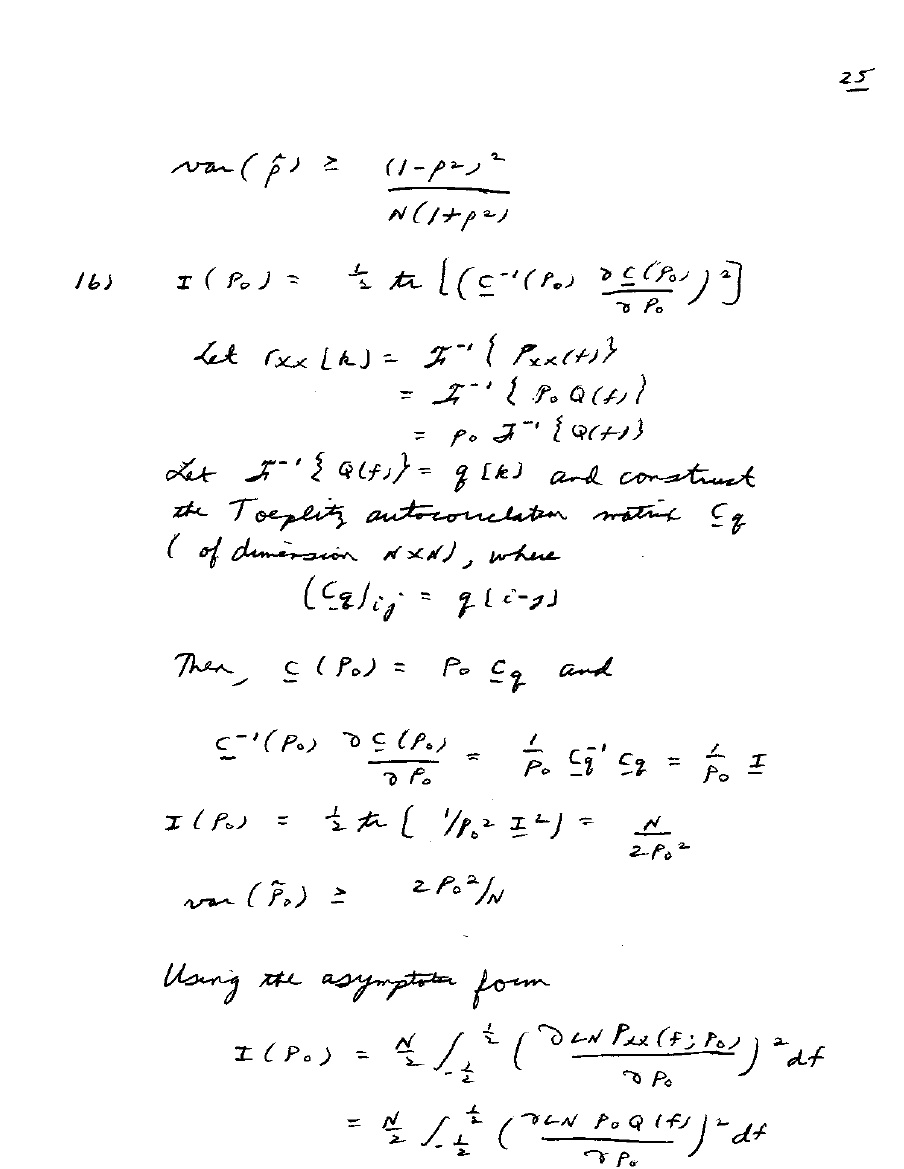 25
var(ρ̂) ≥ (1-ρ²)² / N(1+ρ²)
16) I(P₀) = ½ tr [(C⁻¹(P₀) ∂C(P₀)/∂P₀)²]
Let rxx[k] = 𝓕⁻¹{Pxx(f)}
= 𝓕⁻¹{P₀Q(f)}
= P₀ 𝓕⁻¹{Q(f)}
Let 𝓕⁻¹{Q(f)} = q[k] and construct
the Toeplitz autocorrelation matrix Cq
(of dimension N×N), where
(Cq)ij = q[i-j]
Then, C(P₀) = P₀ Cq and
C⁻¹(P₀) ∂C(P₀)/∂P₀ = 1/P₀ Cq⁻¹ Cq = 1/P₀ I
I(P₀) = ½ tr [1/P₀² I²] = N/2P₀²
var(P̂₀) ≥ 2P₀²/N
Using the asymptotic form
I(P₀) = N/2 ∫_{-½}^{½} (∂ LN Pxx(f; P₀)/∂P₀)² df
= N/2 ∫_{-½}^{½} (∂ LN P₀Q(f)/∂P₀)² df